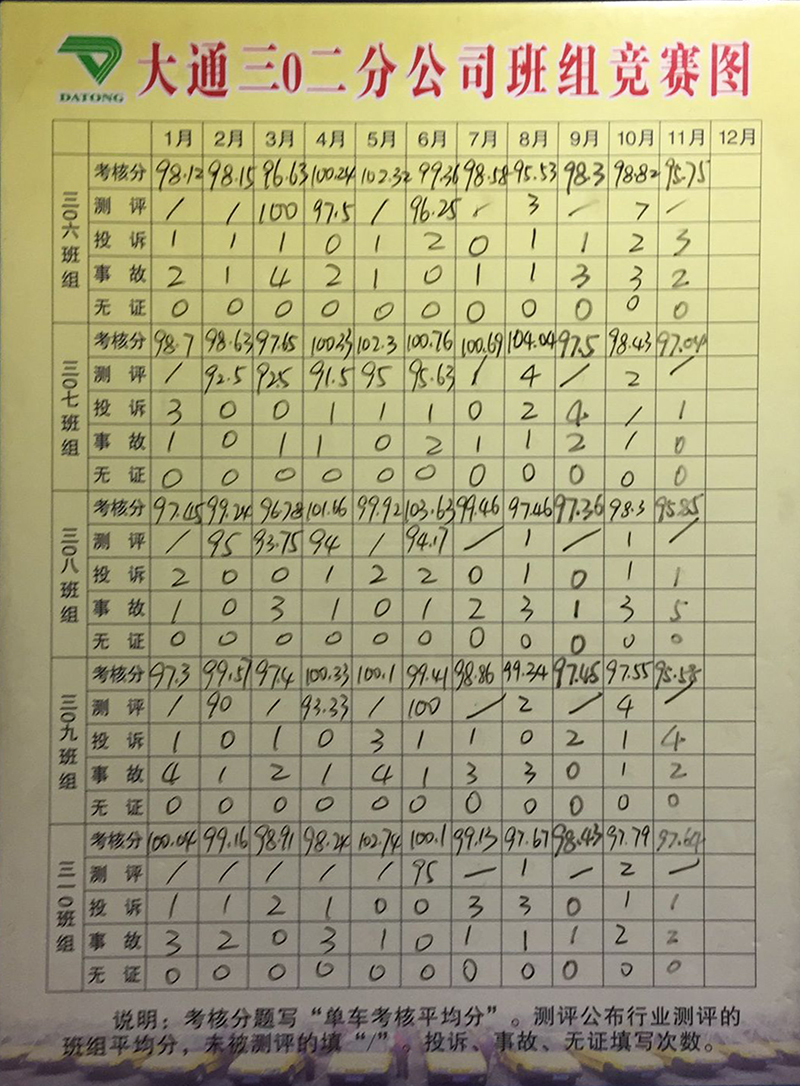 DATONG
大通三0二分公司班组竞赛图
1月 2月 3月 4月 5月 6月 7月 8月 9月 10月 11月 12月
三〇六班组
考核分 98.12 98.15 96.63 100.24 102.32 99.36 98.58 95.53 98.3 98.82 95.75
测评 / / 100 97.5 / 96.25 / 3 / 7 /
投诉 1 1 1 0 1 2 0 1 1 2 3
事故 2 1 4 2 1 0 1 1 3 3 2
无证 0 0 0 0 0 0 0 0 0 0 0
三〇七班组
考核分 98.7 98.63 97.65 100.33 102.3 100.76 100.69 104.04 97.5 98.43 97.04
测评 / 92.5 92.5 91.5 95 95.63 / 4 / 2 /
投诉 3 0 0 1 1 1 0 2 4 / 1
事故 1 0 1 1 0 2 1 1 2 1 0
无证 0 0 0 0 0 0 0 0 0 0 0
三〇八班组
考核分 97.45 99.24 96.78 101.66 99.92 103.63 99.46 97.46 97.36 98.3 95.85
测评 / 95 93.75 94 / 94.17 / 1 / 1 /
投诉 2 0 0 1 2 2 0 1 0 1 1
事故 1 0 3 1 0 1 2 3 1 3 5
无证 0 0 0 0 0 0 0 0 0 0 0
三〇九班组
考核分 97.3 99.57 97.4 100.33 100.1 99.41 98.86 99.34 97.45 97.55
测评 / 90 / 93.33 / 100 / 2 / 4 /
投诉 1 0 1 0 3 1 1 0 2 1 4
事故 4 1 2 1 4 1 3 3 0 1 2
无证 0 0 0 0 0 0 0 0 0 0 0
三一〇班组
考核分 100.04 99.16 98.91 98.24 102.74 100.1 99.13 97.67 98.43 97.79 97.64
测评 / / / / / 95 / 1 / 2 /
投诉 1 1 2 1 0 0 3 3 0 1 1
事故 3 2 0 3 1 0 1 1 1 2 2
无证 0 0 0 0 0 0 0 0 0 0 0
说明：考核分题写“单车考核平均分”。测评公布行业测评的
班组平均分，未被测评的填“/”。投诉、事故、无证填写次数。